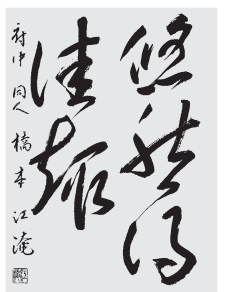 悠然得
佳趣
府中 同人 橋本 江滝